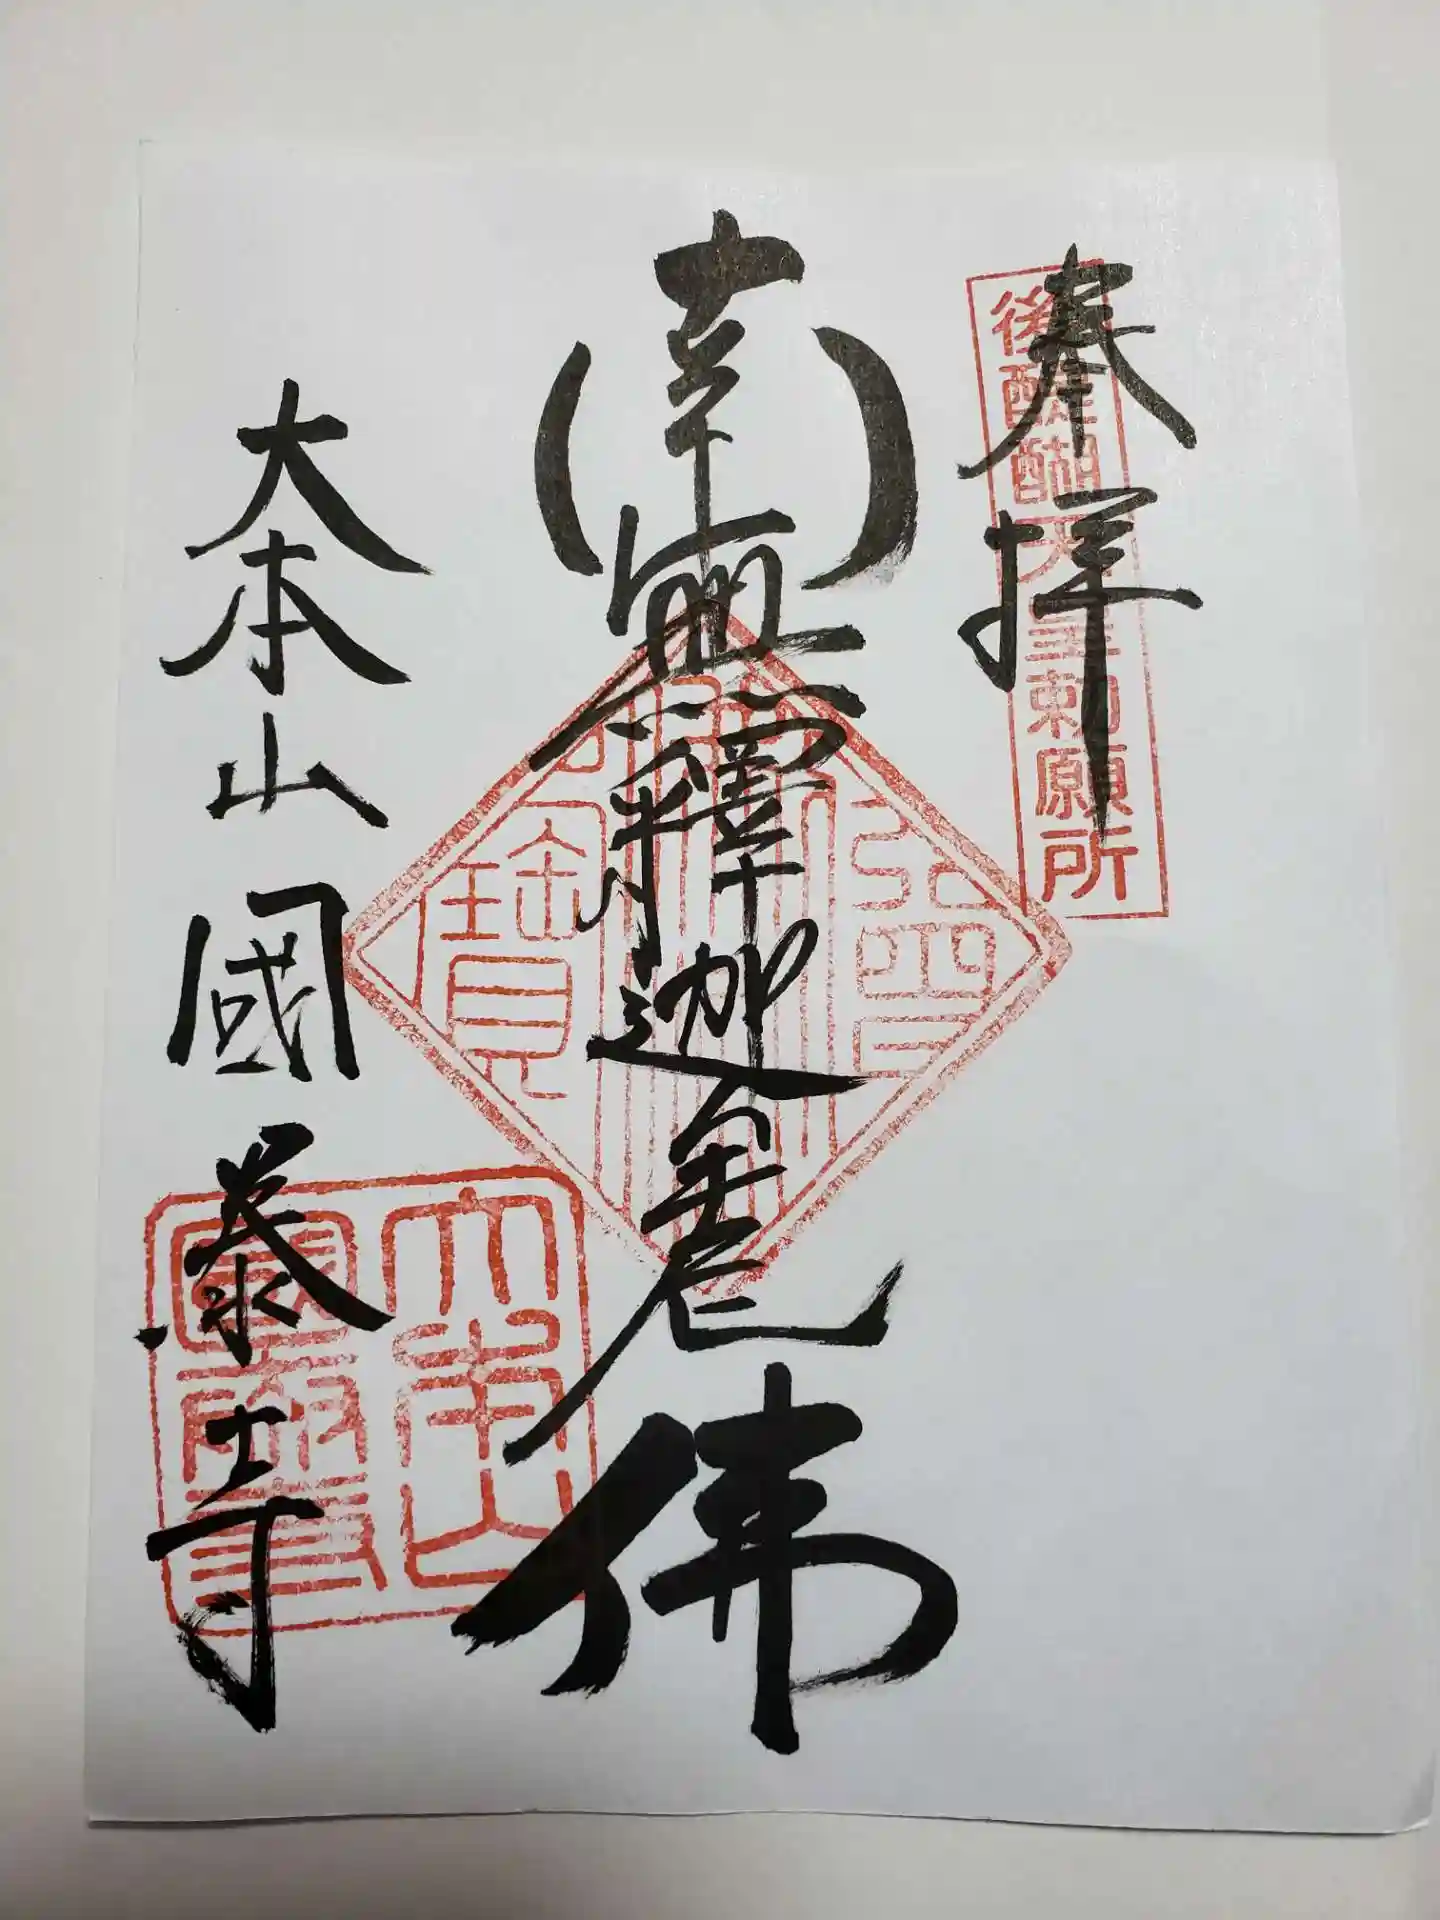 奉拝
後醍醐天皇勅願所
南無釋迦牟尼佛
大本山國泰寺